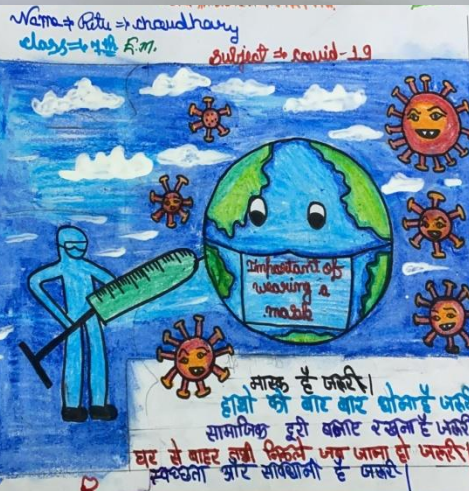 Name⇒ Ritu ⇒ chaudhary
class⇒ 7th E.M.
subject ⇒ couid-19
Important of
wearing a
mask
मास्क है जरूरी।
हाथो को बार बार धोना है जरूरी
सामाजिक दूरी बनाए रखना है जरूरी
घर से बाहर तभी निकले जब जाना हो जरूरी।
स्वच्छता और सावधानी है जरूरी।